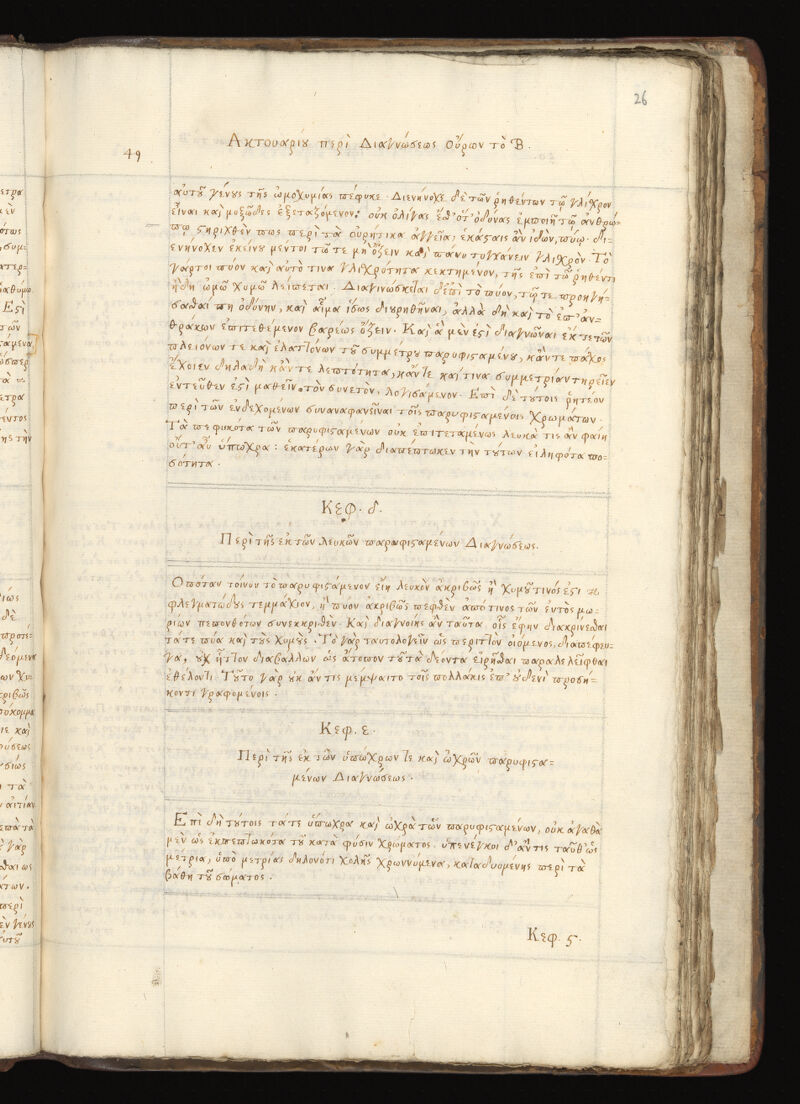 26
49
Ακτουαρίου περὶ Διαγνώσεως Οὔρων τὸ Β.
αὐτοῦ γένους τῆς ὠμοχυμίας πέφυκε. Διενήνοχε δὲ τῶν ῥηθέντων τῷ γλίχρον
εἶναι καὶ μυξῶδες ἐξεταζόμενον· οὐκ ὀλίγας ἐσθ' ὅτ' ὀδύνας ἐμποιῆ τῷ ἀνθρώ=
πῳ στηριχθέν πως περὶ τὰ οὐρητικὰ ἀγγεῖα, ἑκάσταις ἂν ἰδών, πύῳ. δι=
ενήνοχεν ἐκείνου μέντοι τῷ τε μὴ ὄζειν καὶ πάνυ τυγχάνειν γλίσχρον. Τὸ
γάρτοι πύον καὶ αὐτό τινα γλισχρότητα κεκτημένον, τῆς ἐπὶ τῷ ῥηθέντι
ἤδη ὠμῷ χυμῷ λείπεται. Διαγινώσκεται δ' ἐπὶ τὸ πύον, τῷ τε προηγή=
σασθαί πη ὀδύνην, καὶ αἷμα ἴσως διουρηθῆναι, ἀλλὰ δὴ καὶ τὸ ἐπ' ἀν=
θράκων ἐπιτεθέμενον βαρέως ὄζειν. Καὶ ἃ μὲν ἐστὶ διαγνῶναι ἐκ τε τῶν
πλειόνων τε καὶ ἐλαττόνων τοῦ συμμέτρου παρυφισταμένου, κἄν τε πάχος
ἔχοιεν δηλαδὴ κἄν τε λεπτότητα, κἄν τε καί τινα συμμετρίαν τηρεῖεν
ἐντεῦθεν ἐστὶ μαθεῖν τὸν συνετὸν, λογισάμενον. Ἐπὶ δὲ τούτοις ῥητέον
περὶ τῶν ἐνδεχομένων συναναφανεῖναι τοῖς παρυφισταμένοις χρωμάτων.
Τὰ πεφυκότα τῶν παρυφισταμένων οὐκ ἐπιτεταμένως λευκά τις ἂν φαίη
οὔτ' αὖ ὕπωχρα: ἑκατέρων γὰρ διαπέπτωκεν τὴν τούτων εἰληφότα πο=
σότητα.
Κεφ. δ.
Περὶ τῆς ἐκ τῶν λευκῶν παρυφισταμένων Διαγνώσεως.
Ὁπόταν τοίνυν τὸ παρυφιστάμενον εἴη λευκὸν ἀκριβῶς ἢ χυμοῦ τινός ἐστι
φλεγματώδους τεμμάχιον, ἢ πύον ἀκριβῶς πεφθὲν ἀπό τινος τῶν ἐντὸς μω=
ρίων πεπονθότων συνεκκριθέν. Καὶ διαγνοίης ἂν ταῦτα, οἷς ἔφην διακρίνεσθαι
τά τε πύα καὶ τοὺς χυμούς. Τὸ γὰρ ταυτολογεῖν ὡς περιττὸν οἰόμενος, διαπέφευ=
γα, οὐχ ἧττον διαβάλλων ὡς ἄτοπον τοῦ τὰ δέοντα εἰρῆσθαι παραλελείφθαι
ἐθέλοντι. Τοῦτο γὰρ οὐκ ἄν τις μέμψαιτο τοῖς πολλάκις ἐπ' οὐδενὶ προσή=
κοντι γραφομένοις.
Κεφ. ε.
Περὶ τῆς ἐκ τῶν ὑπώχρων τε καὶ ὠχρῶν παρυφιστα=
μένων Διαγνώσεως.
Ἐπὶ δὴ τούτοις τά τε ὕπωχρα καὶ ὠχρὰ τῶν παρυφισταμένων, οὐκ ἀγαθὰ
μὲν ὡς ἐκπεπτωκότα τοῦ κατὰ φύσιν χρώματος. ὑπενέγκοι δ' ἄν τις ταῦθ' ὡς
μέτρια, ὑπὸ μετρίας δηλονότι χολῆς χρωννύμενα, καταδυομένης περὶ τὰ
βάθη τοῦ σώματος.
Κεφ. ς.